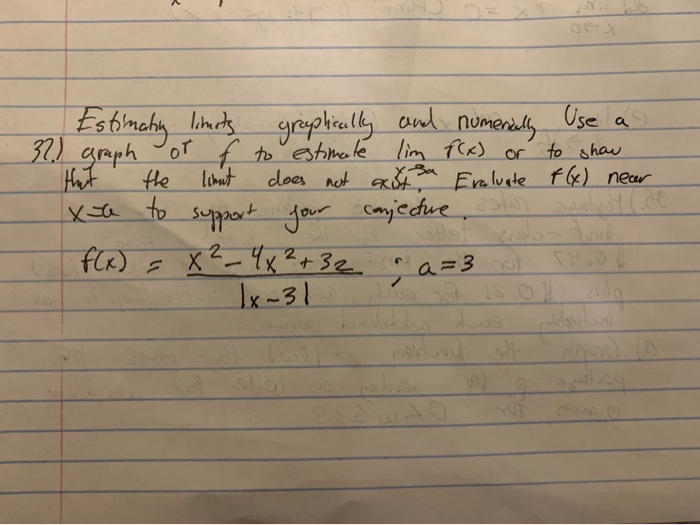 Estimating limits graphically and numerically Use a
37.) graph of f to estimate lim f(x) or to show
x→a
that the limit does not exist. Evaluate f(x) near
x=a to support your conjecture.
f(x) = x²-4x²+3z ; a=3
|x-3|